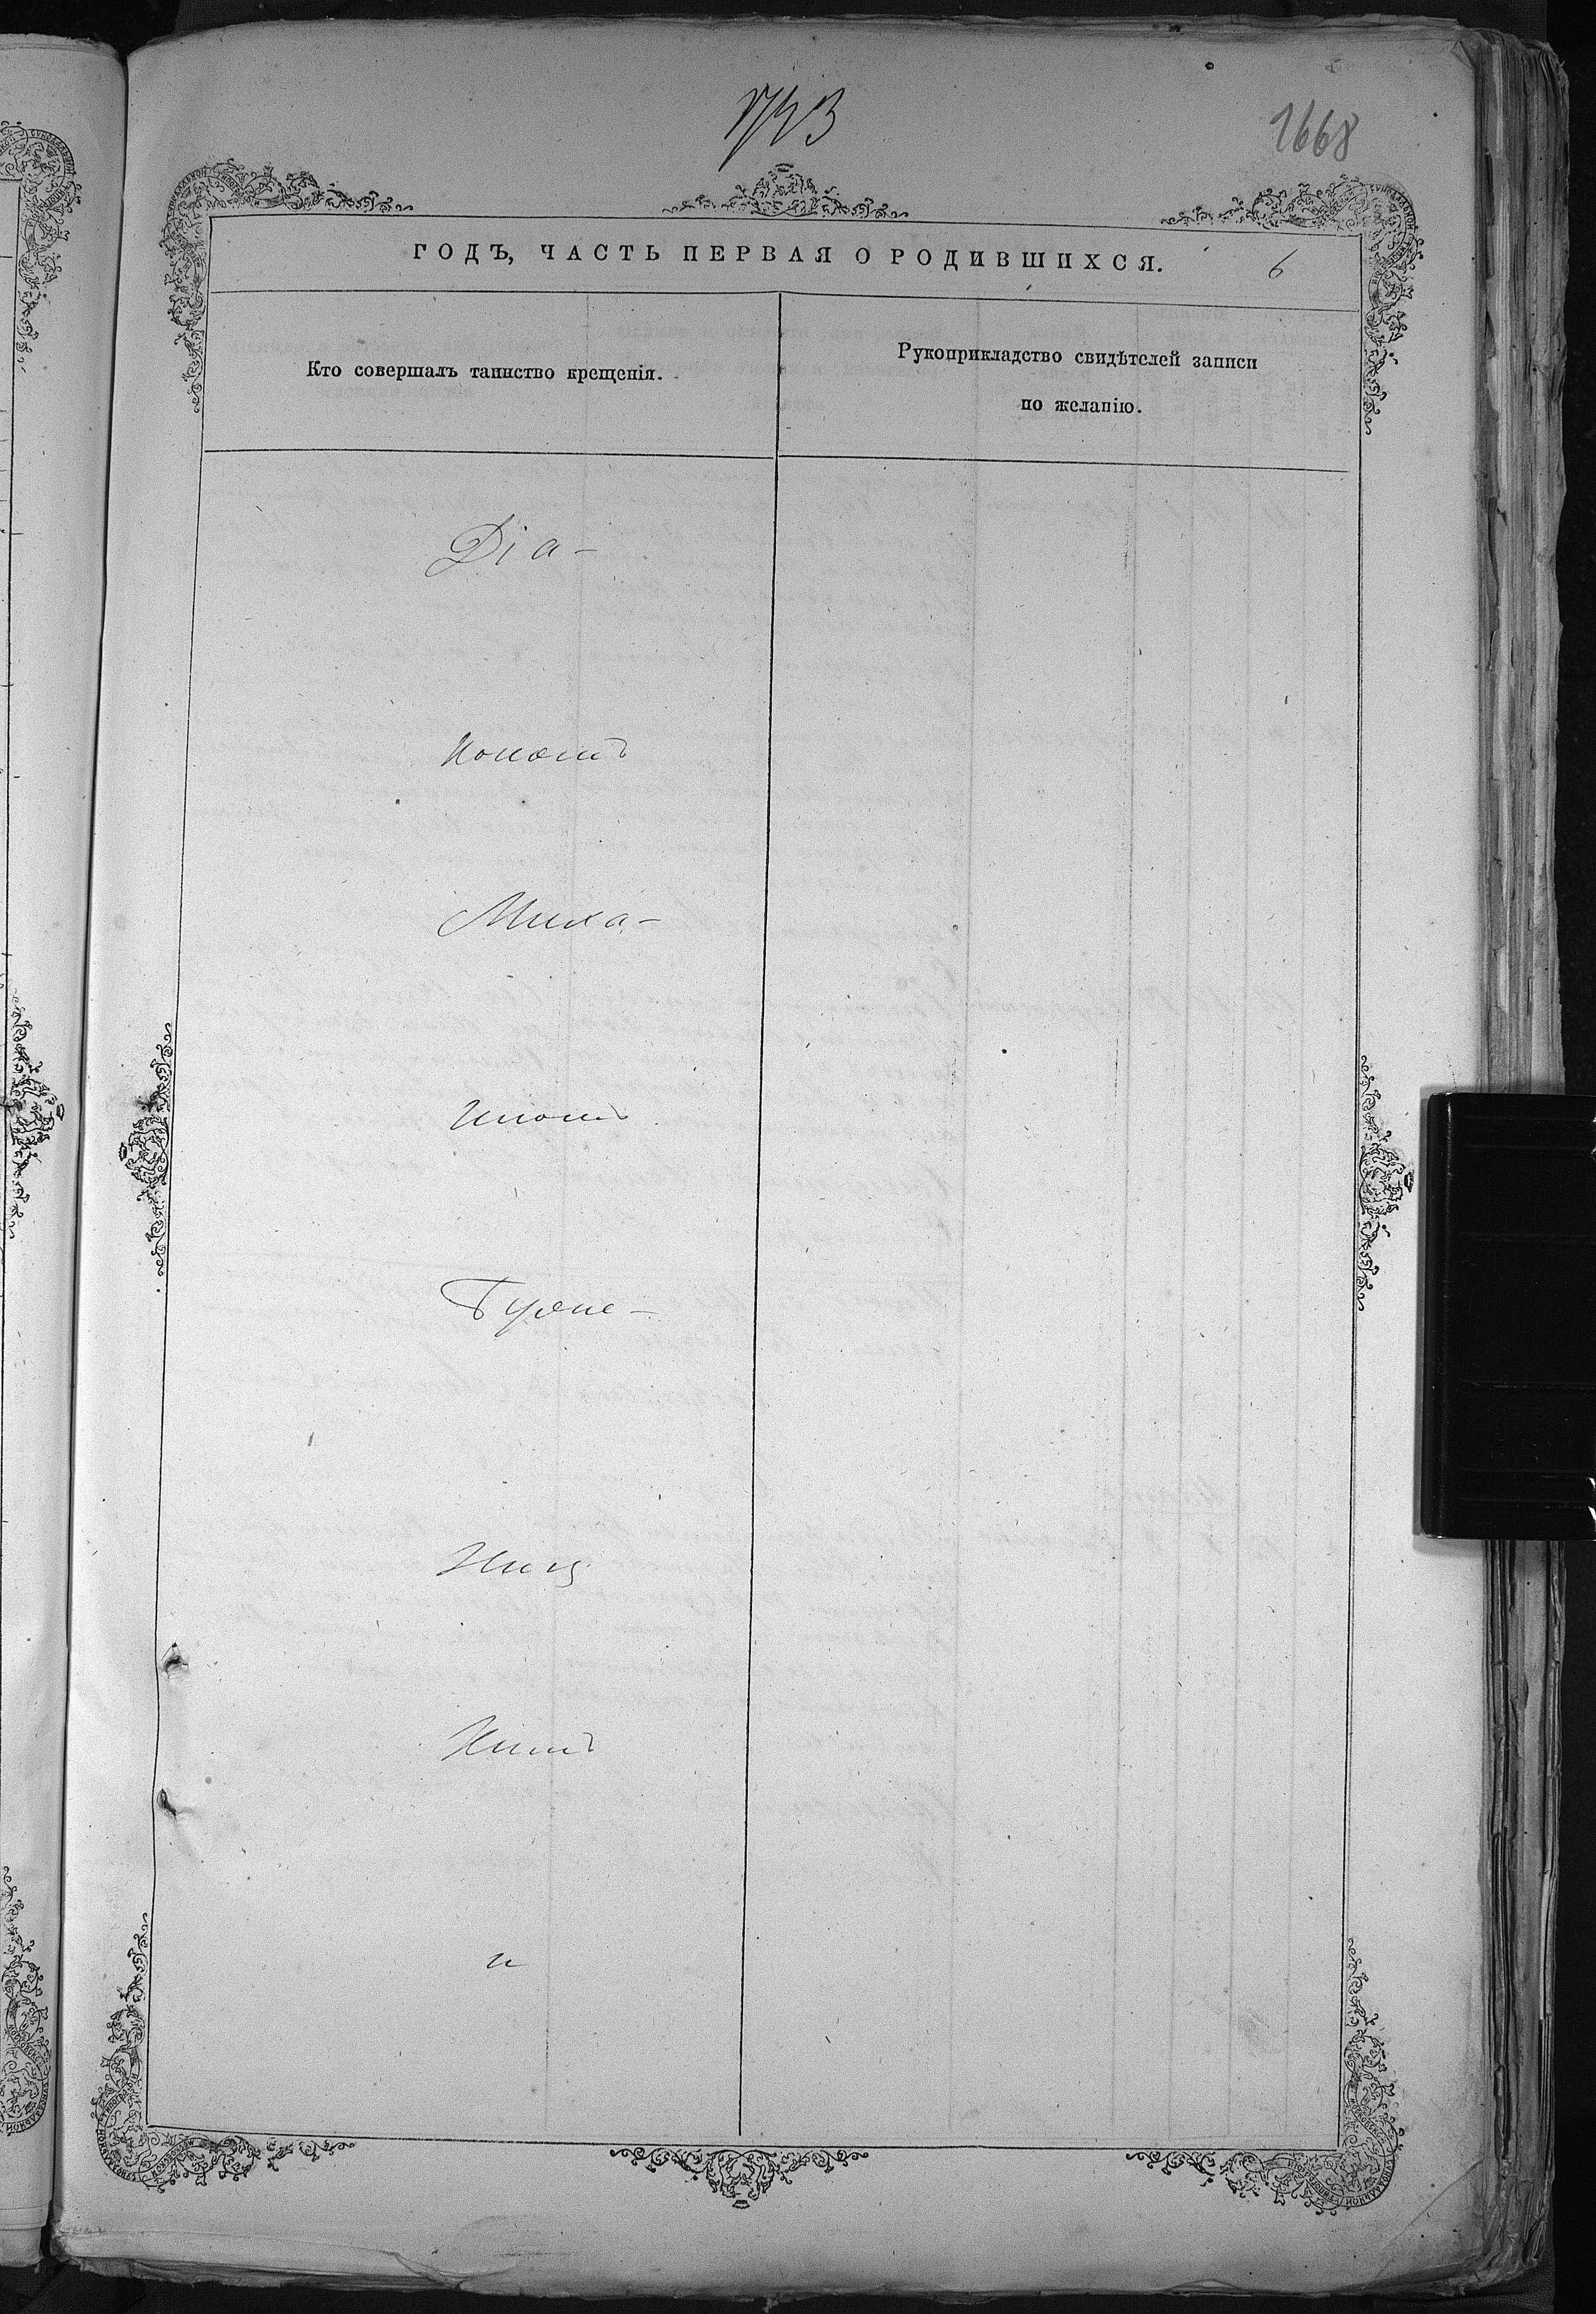 1668
ГОДЪ, ЧАСТЬ ПЕРВАЯ О РОДИВШИХСЯ.
6
Кто совершалъ таинство крещенія.
Рукоприкладство свидѣтелей записи
по желанію.
Діа-
кономъ
Миха-
иломъ
и